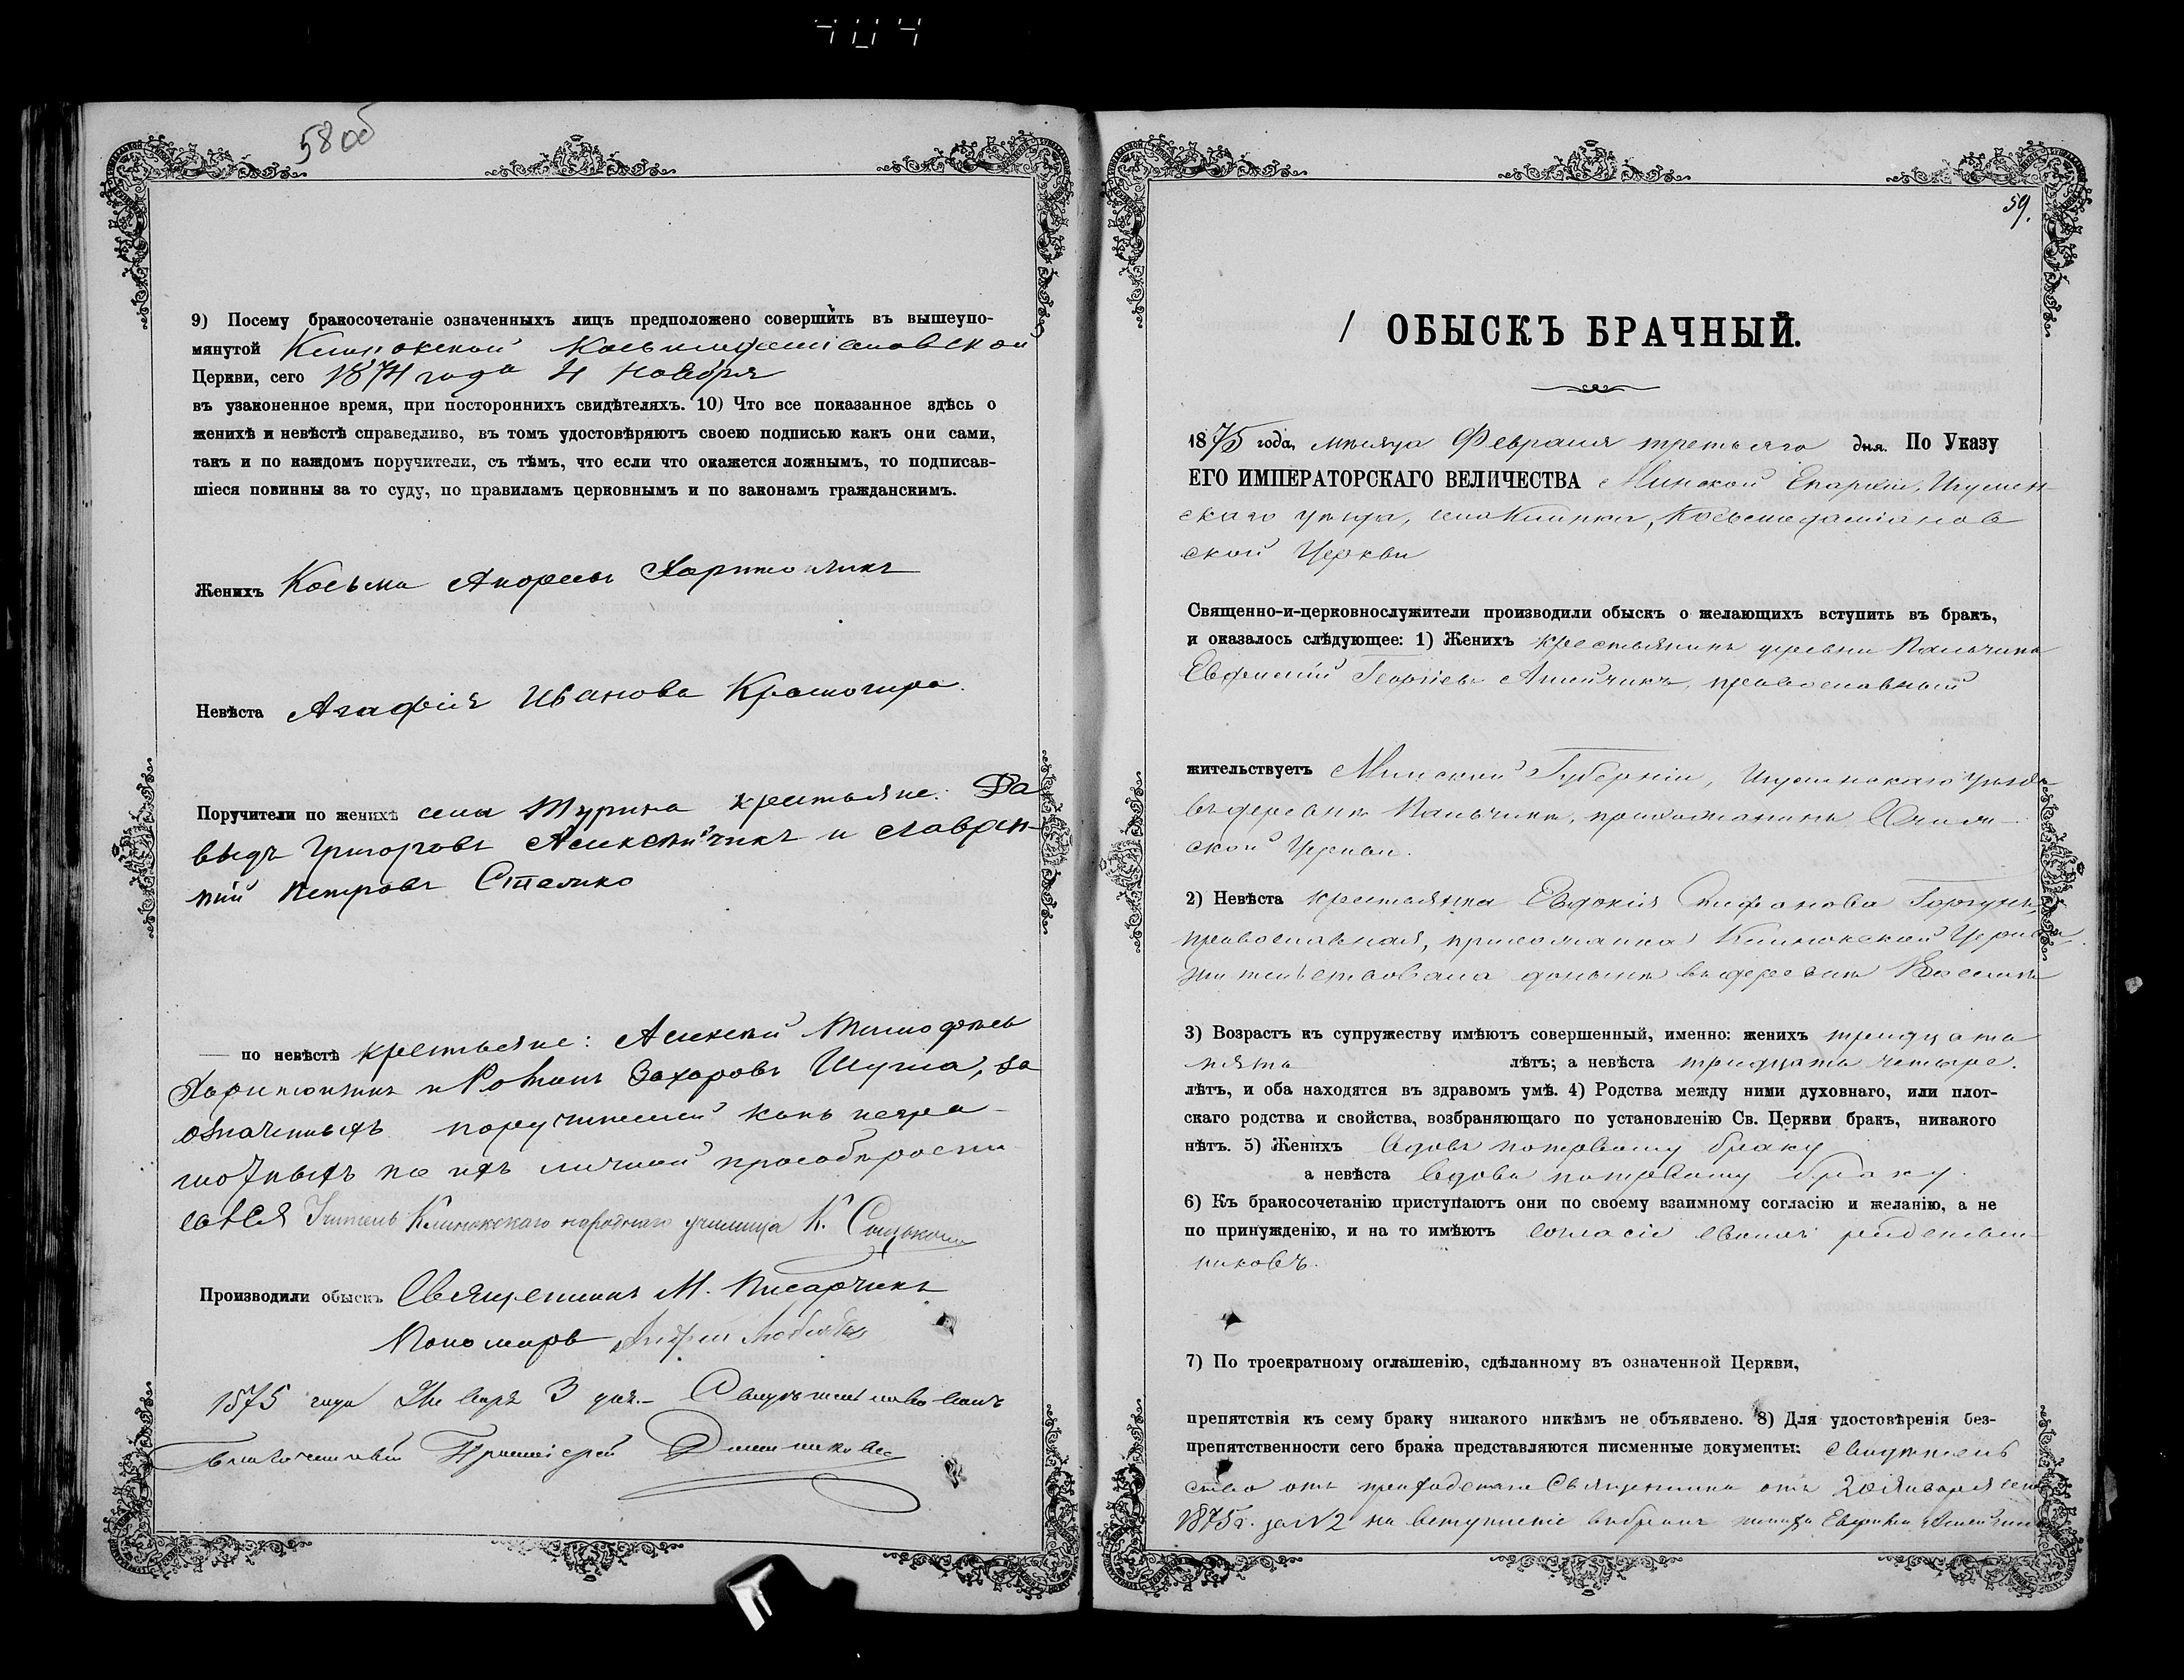 58 об
9) Посему бракосочетаніе означенныхъ лицъ предположено совершить въ вышеупо-
мянутой Клинокской Косьмодаміановской
Церкви, сего 1874 года 4 ноября
въ узаконенное время, при постороннихъ свидѣтеляхъ. 10) Что все показанное здѣсь о
женихѣ и невѣстѣ справедливо, въ томъ удостовѣряютъ своею подписью какъ они сами,
такъ и по каждомъ поручители, съ тѣмъ, что если что окажется ложнымъ, то подписав-
шіеся повинны за то суду, по правиламъ церковнымъ и по законамъ гражданскимъ.
Женихъ Косьма Андреевъ Харитончикъ
Невѣста Агафія Иванова
Поручители по женихѣ села Турина крестьяне: Да
выдъ Григоровъ Алексѣйчикъ и Лаврен-
тій Петровъ
по невѣстѣ крестьяне: Алексѣй Тимофѣевъ
Харитончикъ и Романъ Захаровъ за
означенныхъ поручителей какъ негра-
мотныхъ по ихъ личной прозьбѣ росписа
лся Учитель Клинокскаго народнаго училища К.
Производили обыскъ Священникъ М. Писарчикъ
Пономарь Андрей
1875 года Января 3 дня. Свидѣтельствовалъ
Благочинный Протоіерей
59.
ОБЫСКЪ БРАЧНЫЙ.
1875 года, мѣсяца Февраля третьяго дня. По Указу
ЕГО ИМПЕРАТОРСКАГО ВЕЛИЧЕСТВА Минской Епархіи, Игумен-
скаго уѣзда, села Клинка, Косьмодаміанов
ской Церкви
Священно-и-церковнослужители производили обыскъ о желающихъ вступить въ бракъ,
и оказалось слѣдующее: 1) Женихъ крестьянинъ деревни Пальчика
Евфимій Георгіевъ православный
жительствуетъ Минской Губерніи, Игуменскаго уѣзда
въ деревнѣ Пальчикѣ, прихожанинъ
ской Церкви.
2) Невѣста крестьянка Евдокія Стефанова
православная, прихожанка Клинокской Церкви,
жительствовала донынѣ въ деревнѣ
3) Возрастъ къ супружеству имѣютъ совершенный, именно: женихъ тридцать
пять лѣтъ; а невѣста тридцать четыре.
лѣтъ, и оба находятся въ здравомъ умѣ. 4) Родства между ними духовнаго, или плот-
скаго родства и свойства, возбраняющаго по установленію Св. Церкви бракъ, никакого
нѣтъ. 5) Женихъ вдовъ по первому браку
а невѣста вдова по первому браку.
6) Къ бракосочетанію приступаютъ они по своему взаимному согласію и желанію, а не
по принужденію, и на то имѣютъ согласіе своихъ родствен-
никовъ.
7) По троекратному оглашенію, сдѣланному въ означенной Церкви,
препятствія къ сему браку никакого никѣмъ не объявлено. 8) Для удостовѣренія без-
препятственности сего брака представляются писменные документы: свидѣтель
ство отъ приходскаго Священника отъ 20 Января сего
1875 г. за № 2 на вступленіе въ бракъ